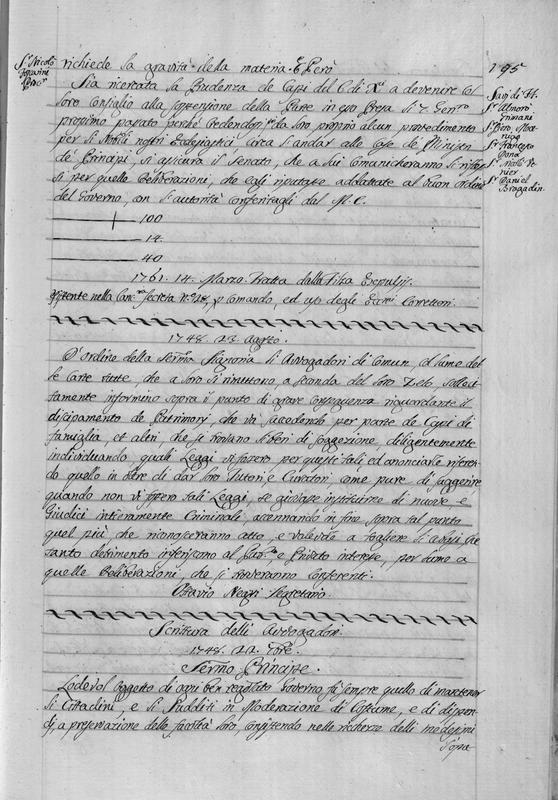 Sr. Nicolò
Foscarini
richiede la gravità della materia. E Però
195
Sia ricercata la Prudenza de Capi del C. di Xci a devenire col
loro Consiglio alla sospensione della Parte in esso Presa li 7. Genro
prossimo passato perchè credendosi da loro proprio alcun provedimento
per li nostri Ecclesiastici circa l'andar alle Case de Ministri
de Principi si assicura il Senato, che a lui comunicheranno li riflessi
si per quelle Deliberazioni, che egli riputasse addattate al buon ordine
del Governo, con l'autorità conferitagli dal M. C.
Savj di
Sr. Almorò
Grimani
Sr. Piero Mocenigo
Sr. Francesco
Donà
Sr. Nicolò Venier
Sr. Daniel
Bragadin
100
14.
40
1761. 14. Marzo. Tratta dalla Filza Expulsis
esistente nella Canc. Secreta N. 28, di Comando, ed uso degli Ecctmi Correttori.
1748. 23. Agosto.
D'ordine della Serma Signoria li Avvogadori di Comun, col lume del
le Carte tutte, che a loro si rimettono, a seconda del loro Zelo, sollecitamente
informino sopra il punto di grave conseguenza riguardante il
discipamento de Patrimonj che và succedendo per parte de Capi di
famiglia, et altri, che si trovano liberi di soggezione, diligentemente
individuando quali Leggi vi fossero per questi tali ed annonciarle riferendo
quello in oltre di dar loro Tutori e Curatori come pure di suggerire
quando non vi fossero tali Leggi, se giovasse instituirne di nuove, e
Giudicj intieramente Criminali, accennando in fine sopra tal punto
quel più che riconosceranno atto, e valevole a togliere li abusi che
tanto detrimento inferiscono al Pubco, e Privato interesse, per lume a
quelle Deliberazioni, che si troveranno conferenti.
Ottavio Negri Segretario.
Scrittura delli Avvogadori.
1748. 22.
Sermo Principe.
Lodevol oggetto di ogni ben regolato Governo fù sempre quello di mantener
li Cittadini, e li Sudditi in Moderazione di Costume, e di
a preservazione delle facoltà loro, consistendo nelle richezze delli medesimi